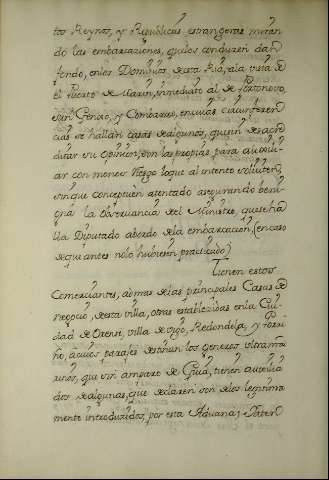 tos Reynos, y Republicas, estrangeras miran
do las embarcaciones, que los conducen dan
fondo, en los Dominios de esta Ria, a la vista de
el Puerto de Marin, inmediato al de Portonovo,
San Genxo, y Combarro, en cuias circunferen
cias se hallan casas de algunos, que sin desacre
ditar su opinion, son las propias para auxiliar
con menos riesgo loque al intento soliciten,
sin que conceptuen atentado asegurando beni
gna la observancia del Ministro, que se ha
lla Diputado abordo de la embarcacion, (en caso
de que antes nolo hubiesen practicado)
Tienen estos
Comerciantes, ademas de las principales Casas de
negocio, de esta villa, otras establecidas en la Ciu
dad de Orense, villa de Vigo, Redondela, y Porri
ño, acuios parajes destinan los generos ultrama
rinos, que sin amparo de Guia, tienen auxilia
dos de algunas, que declaren son de los legitima
mente introducidos, por esta Aduana; Poster